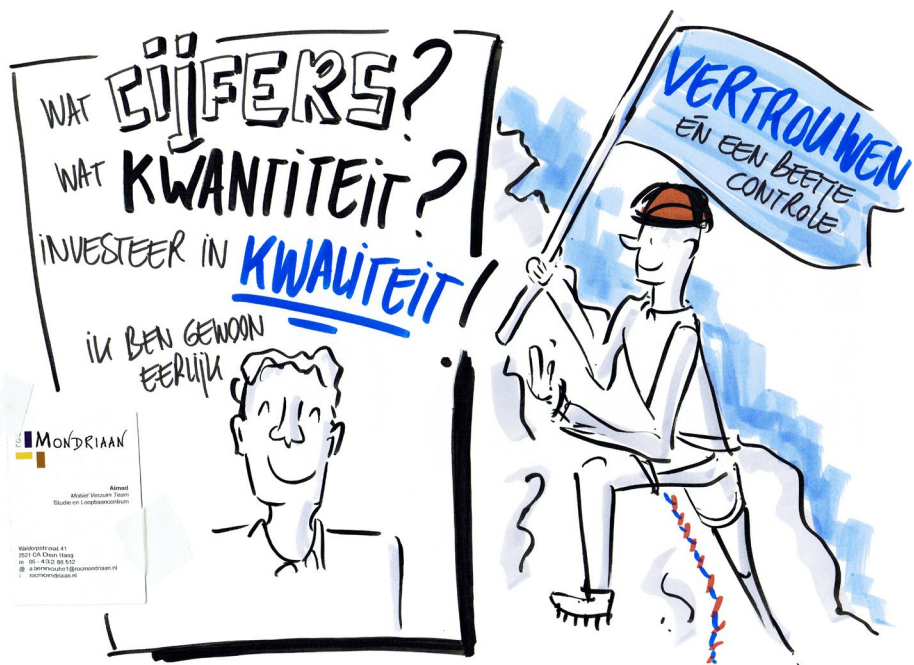 WAT CIJFERS?
WAT KWANTITEIT?
INVESTEER IN KWALITEIT!
IK BEN GEWOON
EERLIJK
VERTROUWEN
ÉN EEN BEETJE
CONTROLE
MONDRIAAN
Aimad
Mobiel Verzuim Team
Studie en Loopbaancentrum
Waldorpstraat 41
2521 CA Den Haag
m 06 - 432 86 512
@ a.bennouho1@rocmondriaan.nl
i rocmondriaan.nl